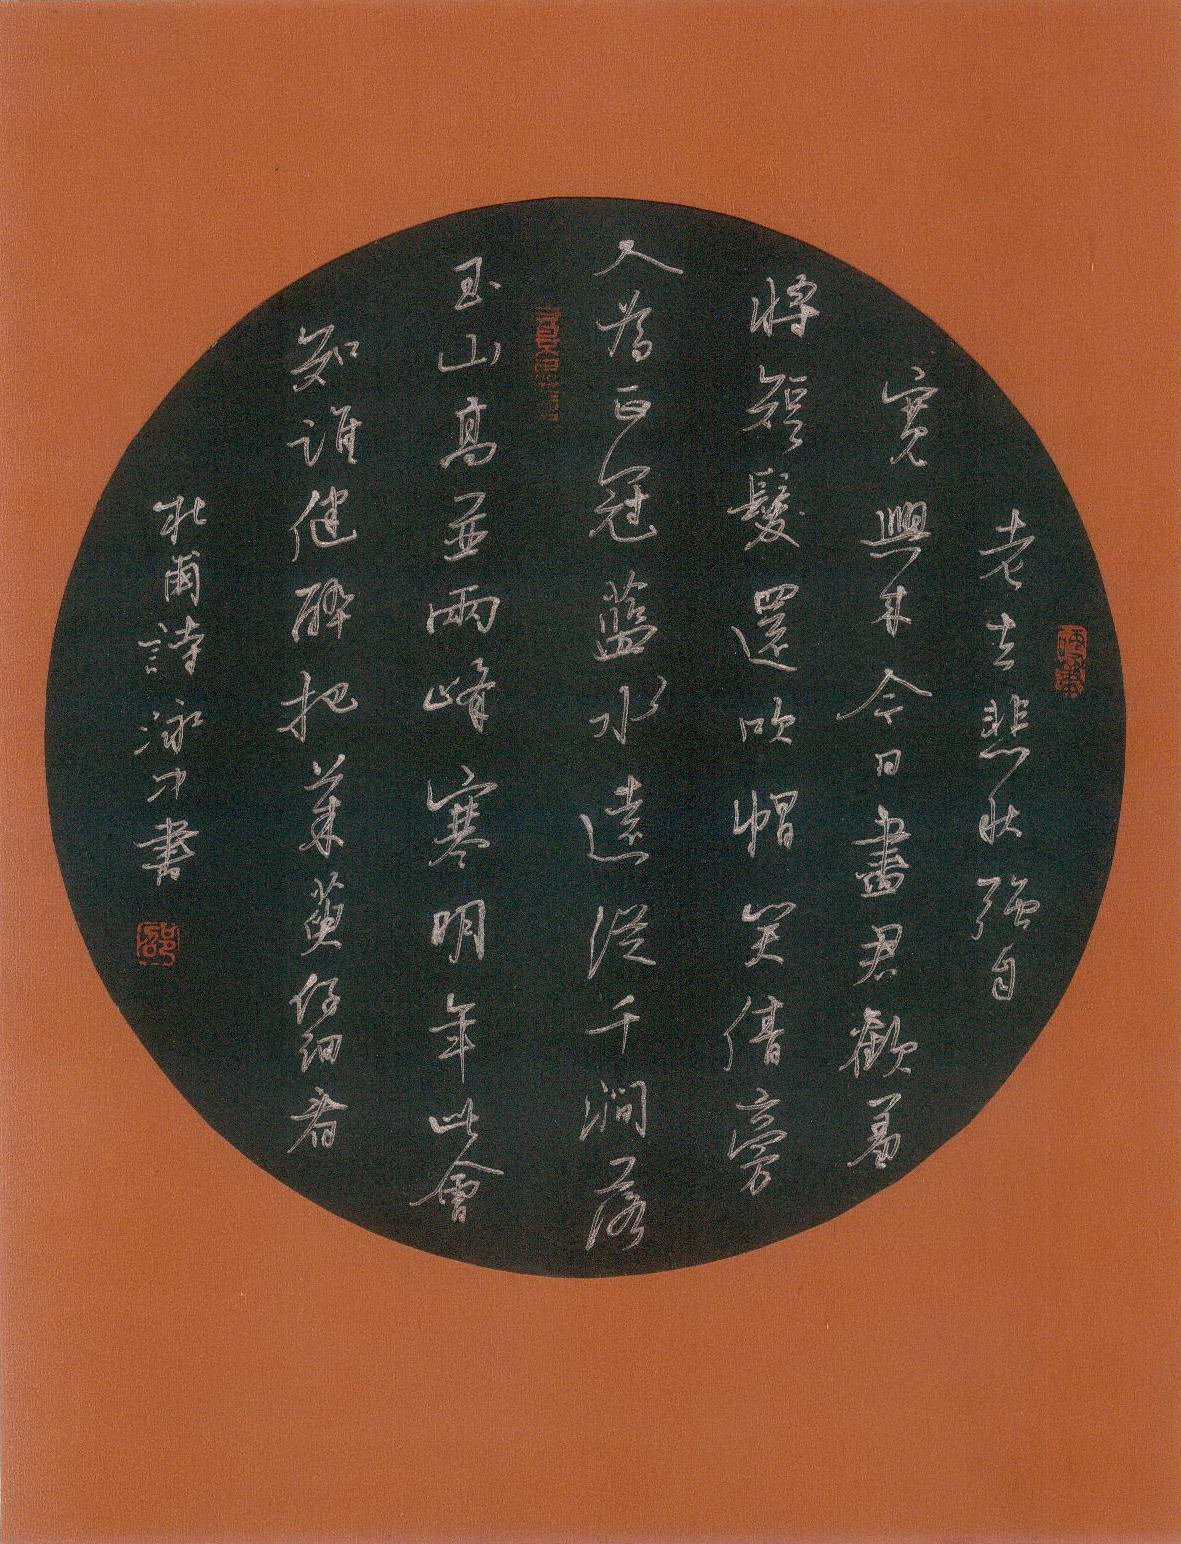 老去悲秋強自
寬興來今日盡君歡羞
將短髮還吹帽笑倩旁
人為正冠藍水遠從千澗落
玉山高並兩峰寒明年此會
知誰健醉把茱萸仔細看
杜甫詩 泳中書